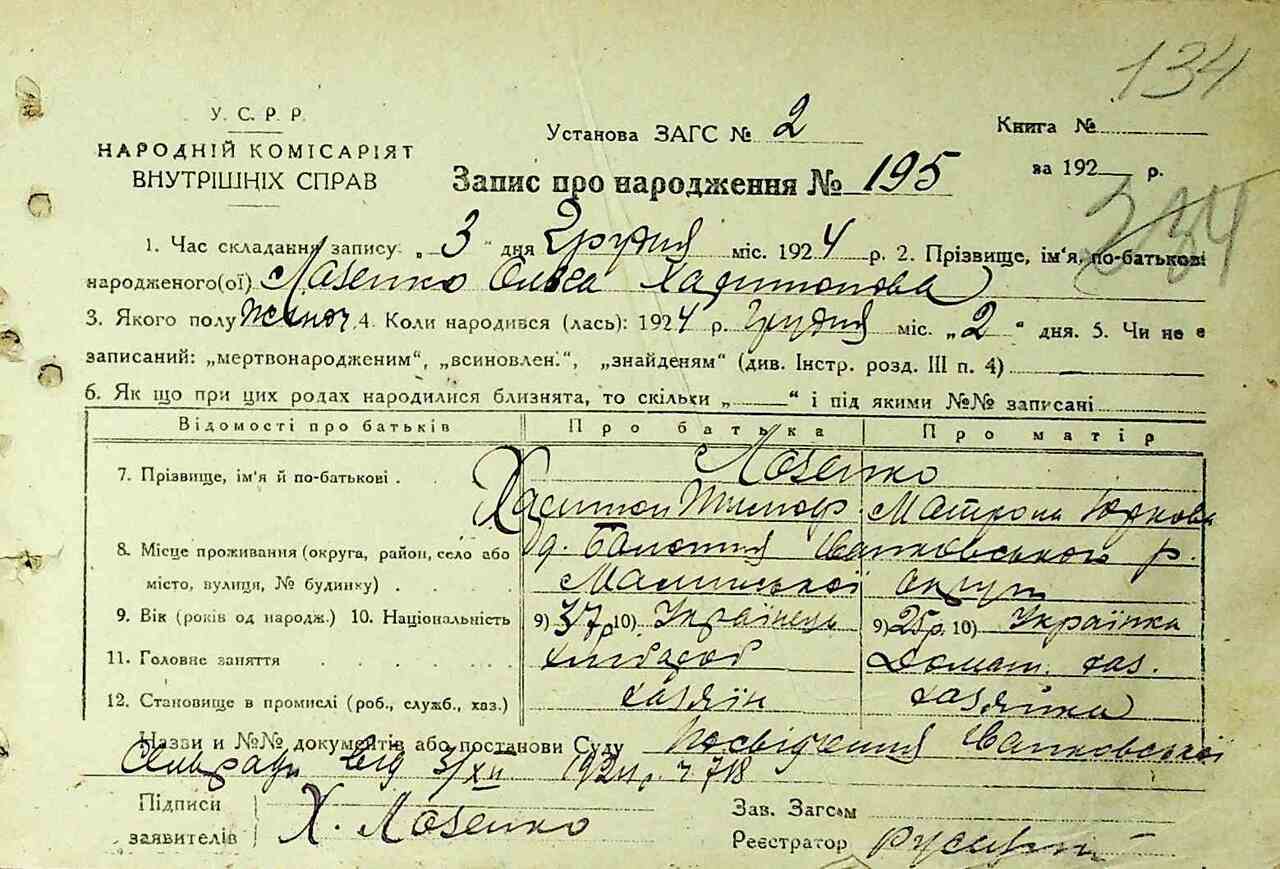 134
У. С. Р. Р.
НАРОДНІЙ КОМІСАРІЯТ
ВНУТРІШНІХ СПРАВ
Установа ЗАГС № 2
Книга №
за 192 р.
Запис про народження № 195
1. Час складання запису: „ 3 " дня Грудня міс. 1924 р. 2. Прізвище, ім'я, по-батькові
народженого(ої) Лозенко Ольга Харитонова
3. Якого полу Жіноч. 4. Коли народився (лась): 1924 р. Грудня міс. „ 2 " дня. 5. Чи не є
записаний: „мертвонародженим", „всиновлен.", „знайденям" (див. Інстр. розд. III п. 4)
6. Як що при цих родах народилися близнята, то скільки „ " і під якими №№ записані
Відомості про батьків Про батька Про матір
7. Прізвище, ім'я й по-батькові . Лозенко
Харитон Тимоф. Матрона Юркова
8. Місце проживання (округа, район, село або Іванковського р.
місто, вулиця, № будинку) . . Малинської округи
9. Вік (років од народж.) 10. Національність 9) 37 р. 10) Українець 9) 25 р. 10) Українка
11. Головне заняття . . . . . хлібороб Домаш. хаз.
12. Становище в промислі (роб., служб., хаз.) хазяїн хазяйка
Назви и №№ документів або постанови Суду Посвідчення Іванковської
Сільради від 3/XII 1924 р. ч 718
Підписи
заявителів Х. Лозенко
Зав. Загсом
Реєстратор